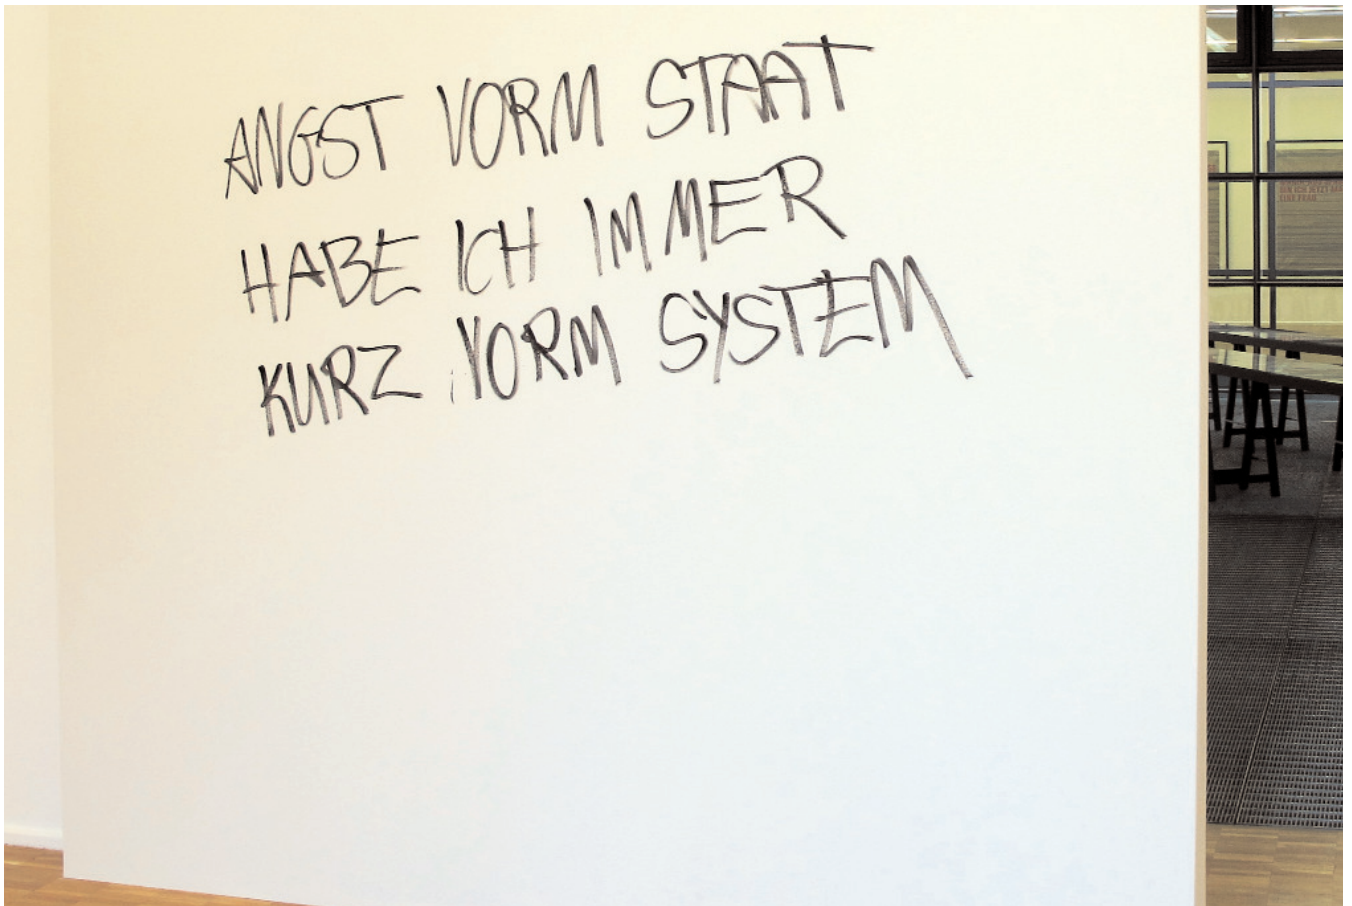 ANGST VORM STAAT
HABE ICH IMMER
KURZ VORM SYSTEM